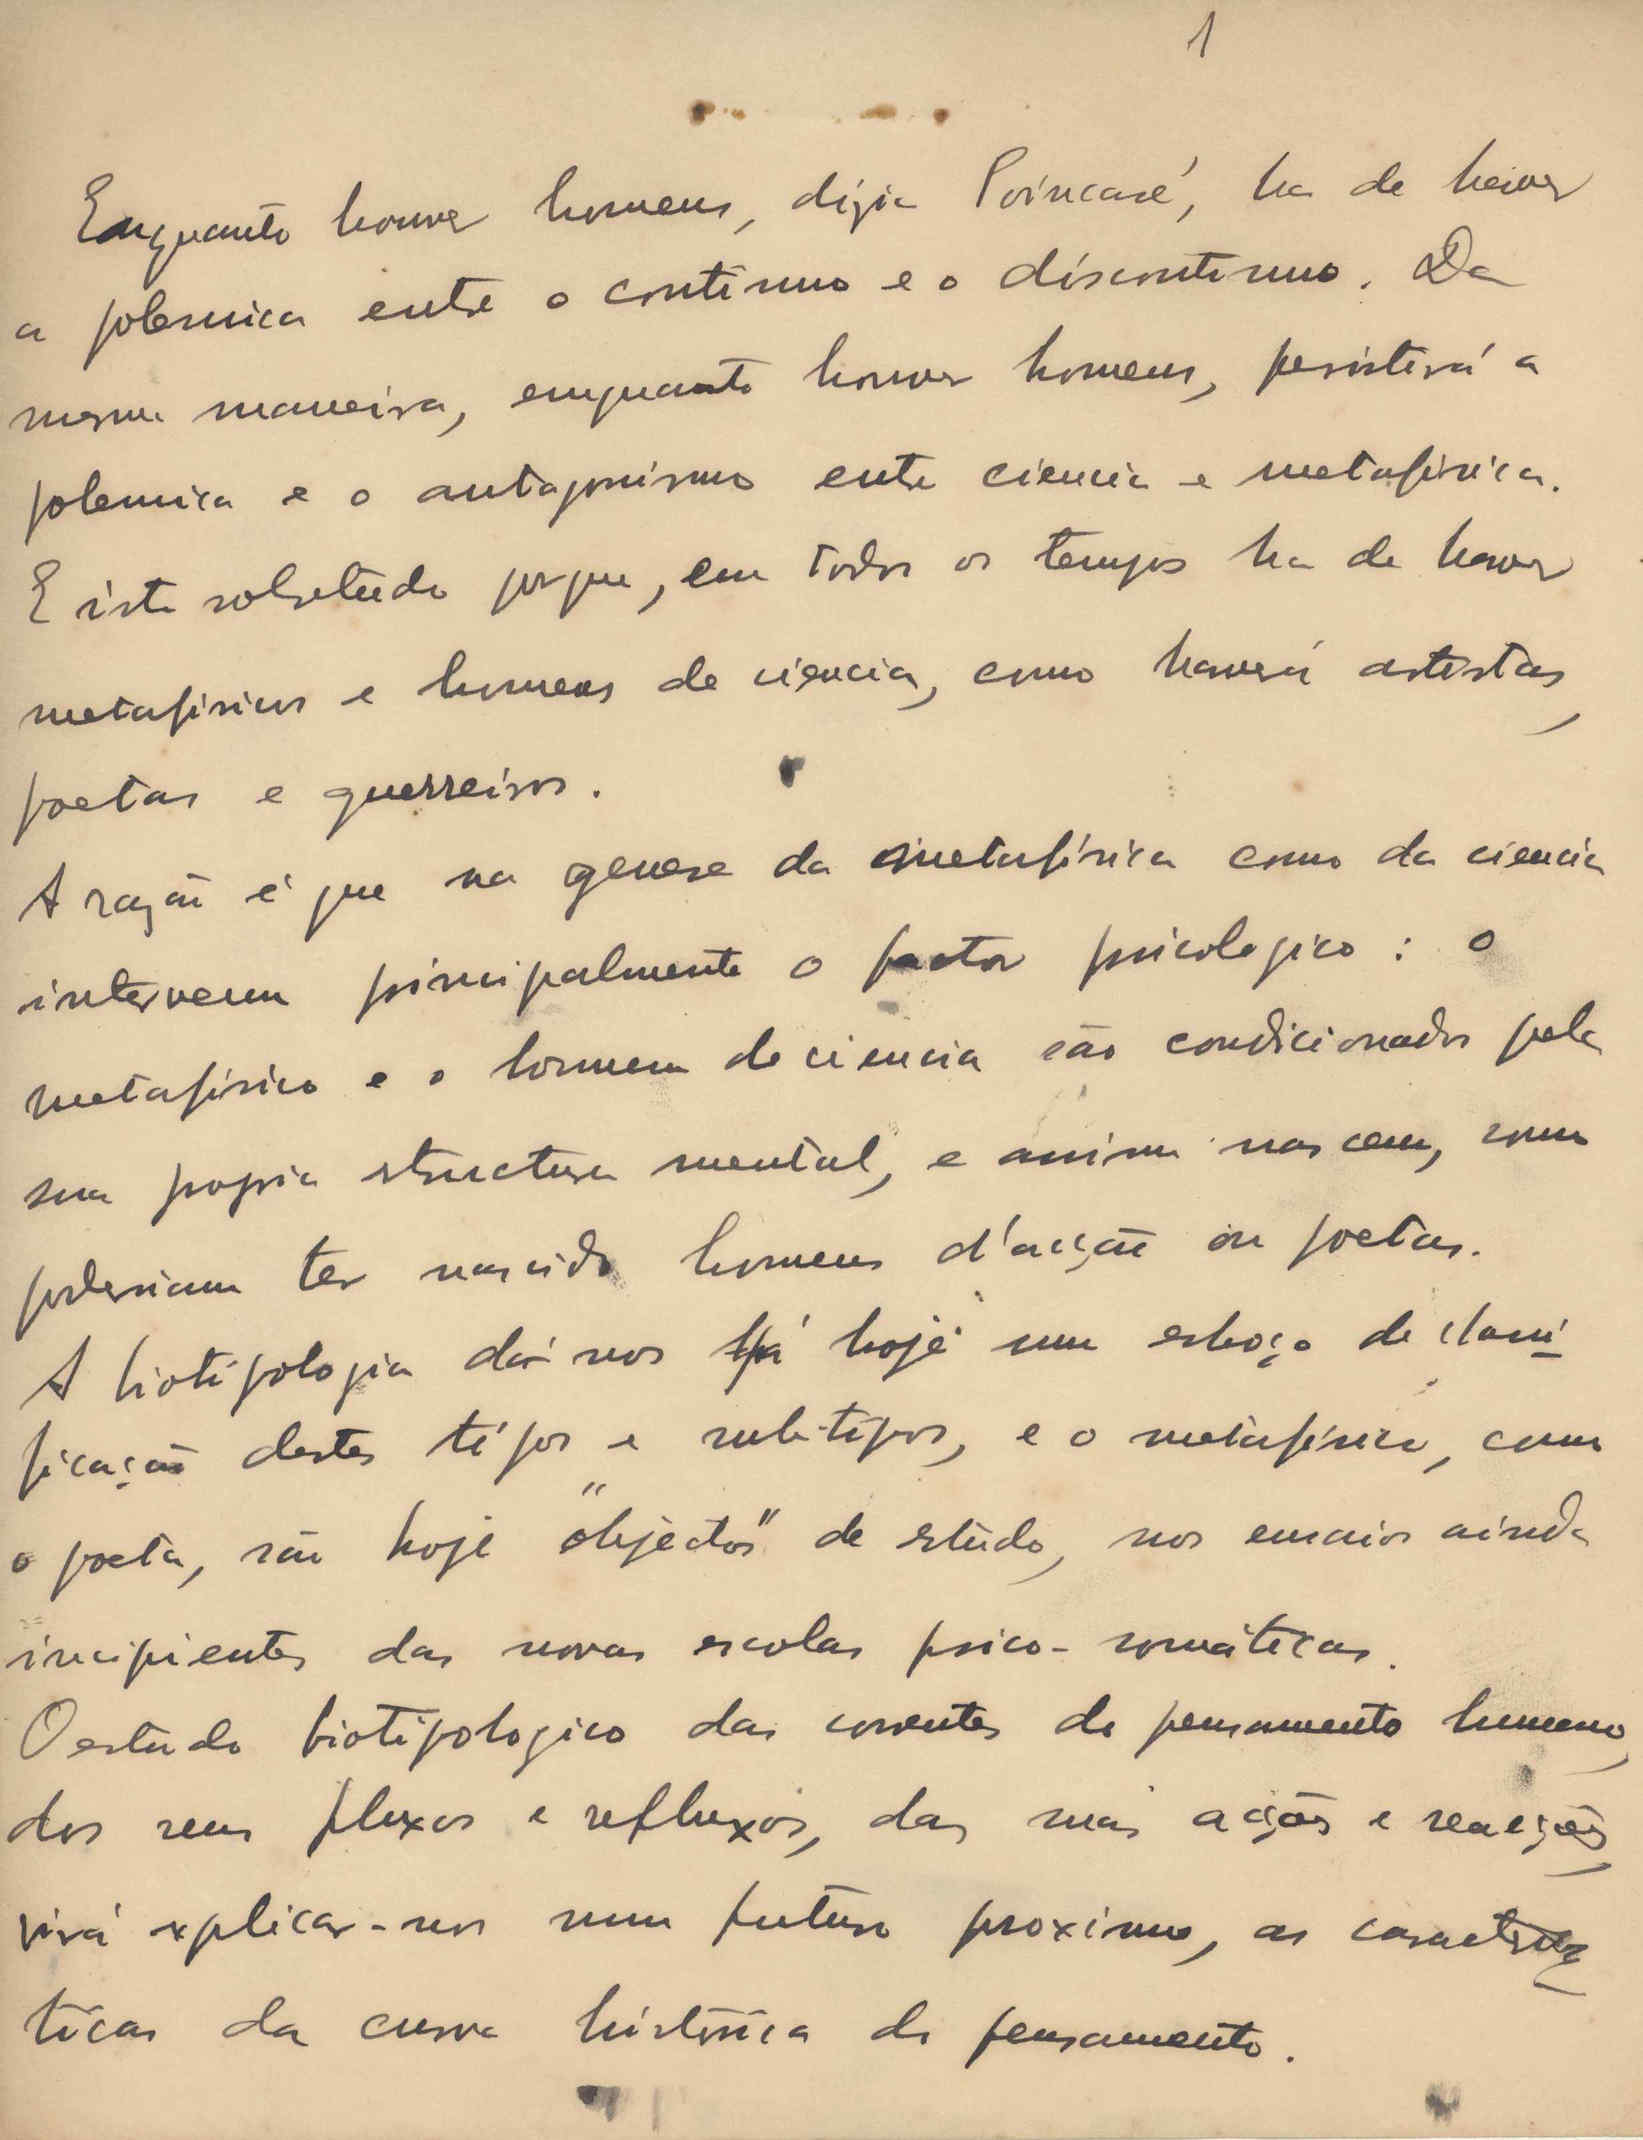 1
Enquanto houver homens, dizia Poincaré, ha de haver
a polemica entre o contínuo e o díscontinuo. Da
mesma maneira, emquanto houver homens, persistirá a
polemica e o antagonismo entre ciencia e metafisica.
E isto sobretudo porque, em todos os tempos ha de haver
metafisicos e homens de ciencia, como haverá artistas,
poetas e guerreiros.
A razão é que na genese da metafísica como da ciencia
intervem principalmente o factor psicologico : o
metafísico e o homem de ciencia são condicionados pela
sua propria structura mental, e assim nascem, como
poderiam ter nascido homens d'acção ou poetas.
A biotipologia dá-nos já hoje um esboço de classi
ficação destes típos e sub-tipos, e o metafísico, como
o poeta, são hoje "objectos" de estudo, nos ensaios ainda
incipientes das novas escolas psico-somáticas.
O estudo biotipologico das correntes do pensamento humano,
dos seus fluxos e refluxos, das suas acções e reacções,
virá explicar-nos num futuro proximo, as caracterís
ticas da curva histórica do pensamento.